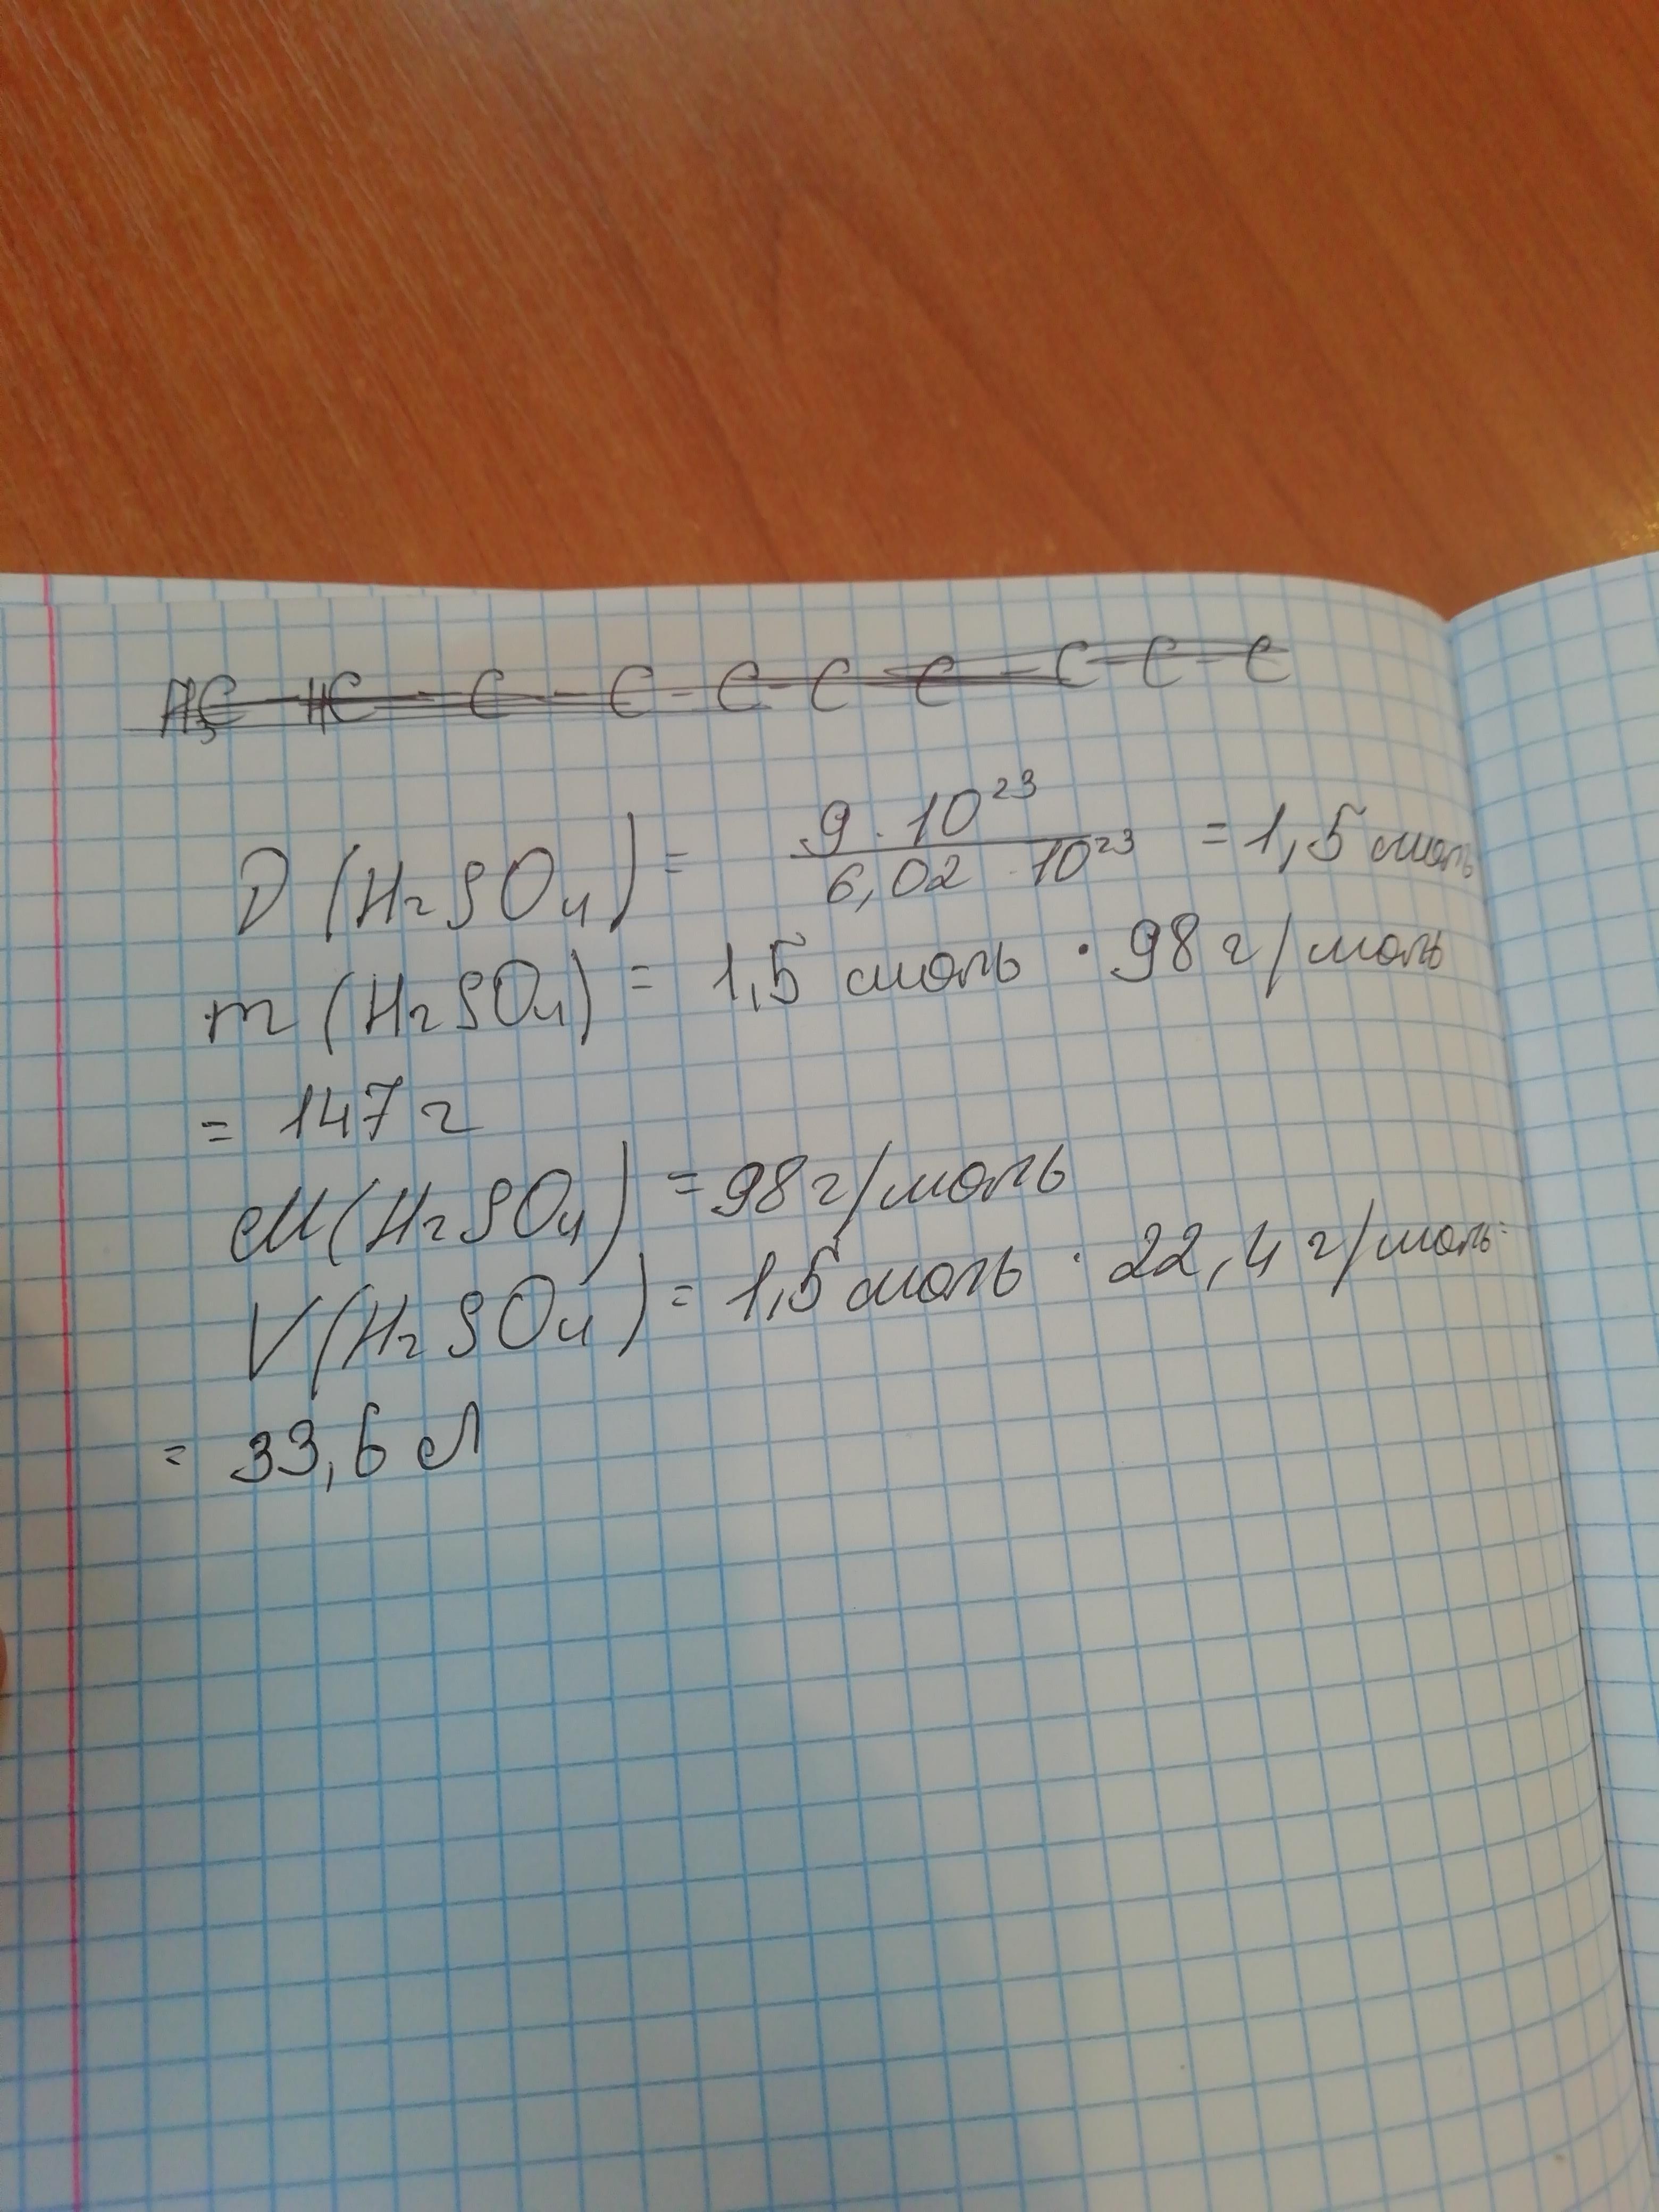 H₃C - HC - C - C - C - C - C - C - C - C
D (H₂SO₄) = 9 · 10²³ / 6,02 · 10²³ = 1,5 моль
m (H₂SO₄) = 1,5 моль · 98 г/моль
= 147 г
M (H₂SO₄) = 98 г/моль
V (H₂SO₄) = 1,5 моль · 22,4 г/моль
= 33,6 л